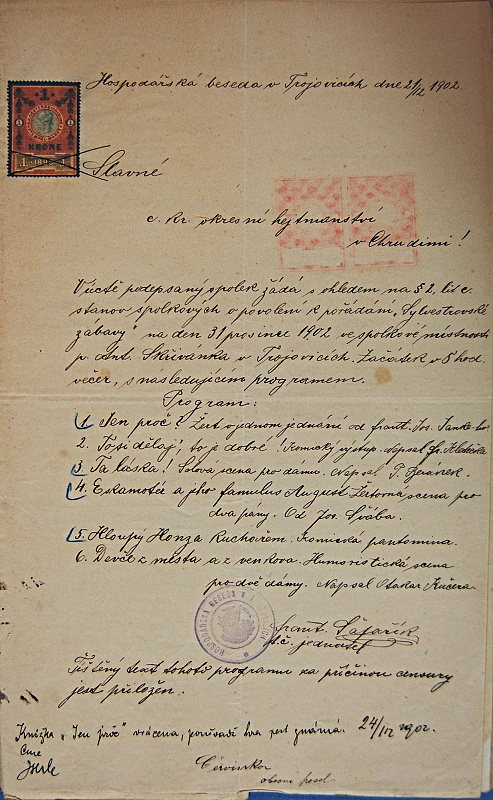 Hospodářská beseda v Trojovicích dne 21/12 1902.
1
KRONE
1 1898 1
Slavné
c. kr. okresní hejtmanství
v Chrudimi!
V úctě podepsaný spolek žádá s ohledem na § 2, lit c.
stanov spolkových o povolení k pořádání „Sylvestrovské
zábavy" na den 31 prosince 1902 ve spolkové místnosti
p. Ant. Skřivánka v Trojovicích. Začátek v 8 hod.
večer, s následujícím programem.
Program:
1. Jen proč? Žert o jednom jednání od Frant. Jos.
2. to je dobré! Komický výstup. Napsal
3. Ta láska! Solová scena pro dámu. Napsal F.
4. Eskamotér a jeho famulus August žertovná scena pro
dva pány. Od Jos. Švába.
5. Hloupý Honza Kuchařem. Komická pantomina.
6. Děvče z města a z venkova. Humoristická scena
pro dvě dámy. Napsal Otakar Kučera.
HOSPODÁŘSKÁ BESEDA V
Frant. Šafařík
t.č. jednatel
Tištěný text tohoto programu za příčinou censury
jest přiložen.
Knížka „Jen proč" vrácena, hra jest známá. 24/12 1902.
Červinka